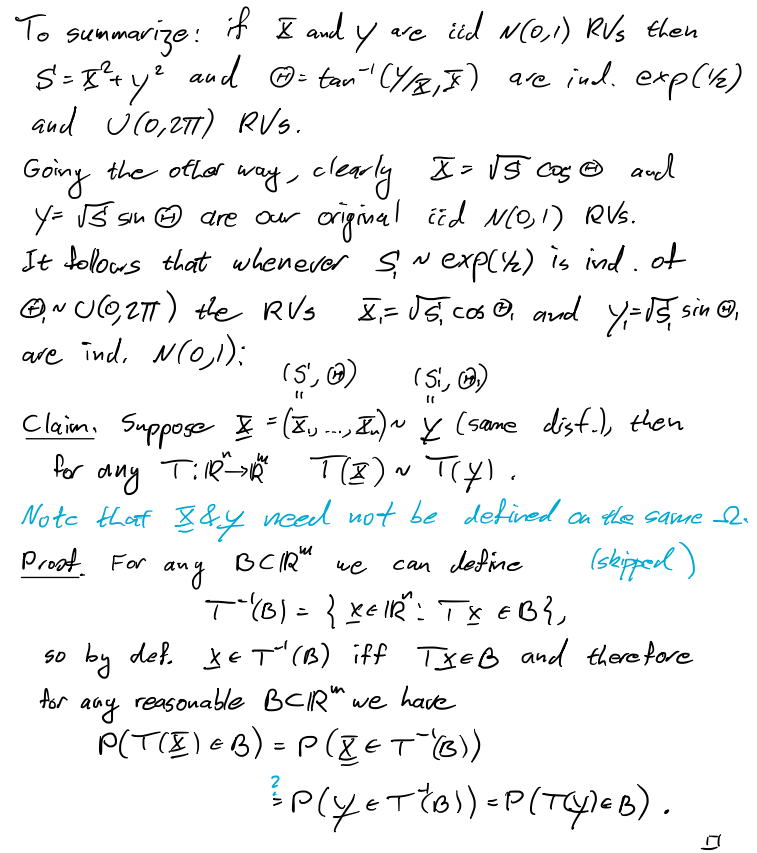 To summarize: if X and Y are iid N(0,1) RVs then
S = X² + Y² and Θ = tan⁻¹(Y/X, X) are ind. exp(1/2)
and U(0,2π) RVs.
Going the other way, clearly X = √S cos Θ and
Y = √S sin Θ are our original iid N(0,1) RVs.
It follows that whenever S₁ ~ exp(1/2) is ind. of
Θ₁ ~ U(0,2π) the RVs X₁ = √S₁ cos Θ₁ and Y₁ = √S₁ sin Θ₁
are ind. N(0,1):
(S, Θ) (S₁, Θ₁)
" "
Claim. Suppose X = (X₁, ..., Xₙ) ~ Y (same dist.), then
for any T: ℝⁿ → ℝᵐ T(X) ~ T(Y).
Note that X & Y need not be defined on the same Ω.
Proof. For any B ⊂ ℝᵐ we can define (skipped)
T⁻¹(B) = { x ∈ ℝⁿ : Tx ∈ B },
so by def. x ∈ T⁻¹(B) iff Tx ∈ B and therefore
for any reasonable B ⊂ ℝᵐ we have
P(T(X) ∈ B) = P(X ∈ T⁻¹(B))
?
= P(Y ∈ T⁻¹(B)) = P(T(Y) ∈ B).
□